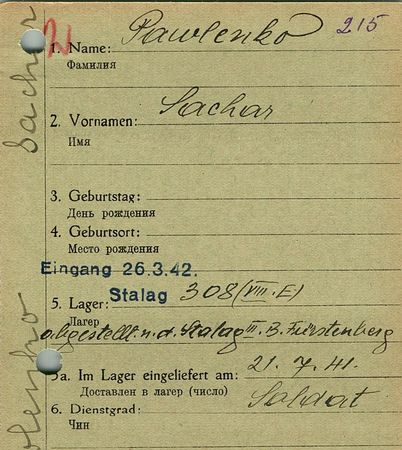 215
2
1. Name: Pawlenko
Фамилия
Sachar
2. Vornamen: Sachar
Имя
3. Geburtstag:
День рождения
4. Geburtsort:
Место рождения
Eingang 26.3.42.
5. Lager: Stalag 308 (VIII.E)
Лагерь
abgestellt. n. d. Stalag III. B. Fürstenberg
5a. Im Lager eingeliefert am: 21. 7. 41.
Доставлен в лагерь (число)
6. Dienstgrad: Soldat
Чин